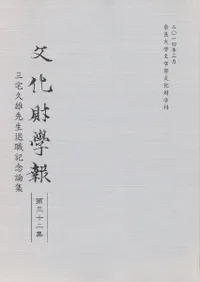 二〇一四年三月
奈良大学文学部文化財学科
文化財學報
第三十二集
三宅久雄先生退職記念論集